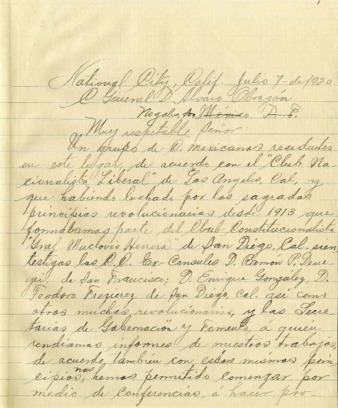 National City, Calif. Julio 7 de 1920
C. General D. Alvaro Obregón
Nogales, Mexico. D. F.
Muy respetable Señor
Un grupo de C. mexicanos residentes
en este lugar, de acuerdo con el "Club Na-
cionalista Liberal" de Los Angeles, Cal. y
que habiendo luchado por los sagrados
principios revolucionarios desde 1913 que
formabamos parte del Club Constitucionalista
"Gral. Maclovio Herrera" de San Diego, Cal. sien
testigos los C.C. Ex Consules D. Ramon P.
de San Francisco; D. Enrique Gonzalez, D.
Teodoro de San Diego Cal. asi como
otros muchos revolucionarios, y las Secre-
tarias de Gobernacion y Fomento, a quien
rendiamos informes de nuestros trabajos,
de acuerdo tambien con estos mismos prin
cipios, nos hemos permitido comenzar por
medio de conferencias, a hacer pro-